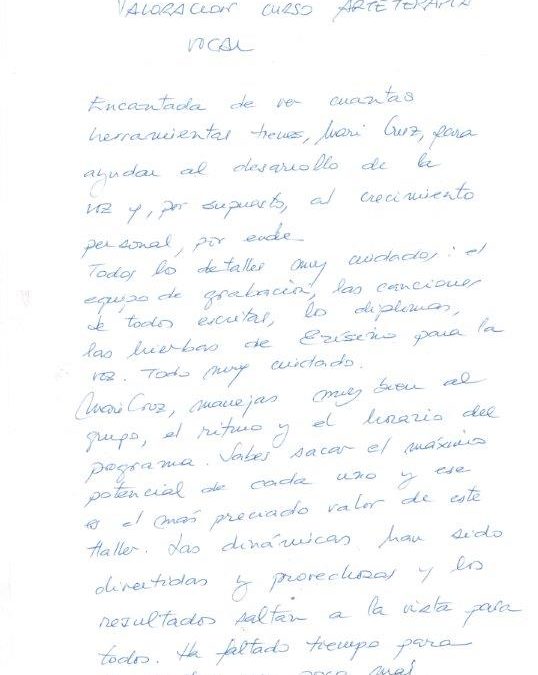 VALORACION CURSO ARTETERAPIA
VOCAL
Encantada de ver cuantas
herramientas tienes, Mari Cruz, para
ayudar al desarrollo de la
voz y, por supuesto, al crecimiento
personal, por ende.
Todos lo detalles muy cuidados: el
equipo de grabación, las canciones
de todos escritas, lo diplomas,
las hierbas de Erísimo para la
voz. Todo muy cuidado.
Mari Cruz, manejas muy bien al
grupo, el ritmo y el horario del
programa. Sabes sacar el máximo
potencial de cada uno y ese
es el más preciado valor de este
taller. Las dinámicas han sido
divertidas y provechosas y los
resultados saltan a la vista para
todos. Ha faltado tiempo para
poco más